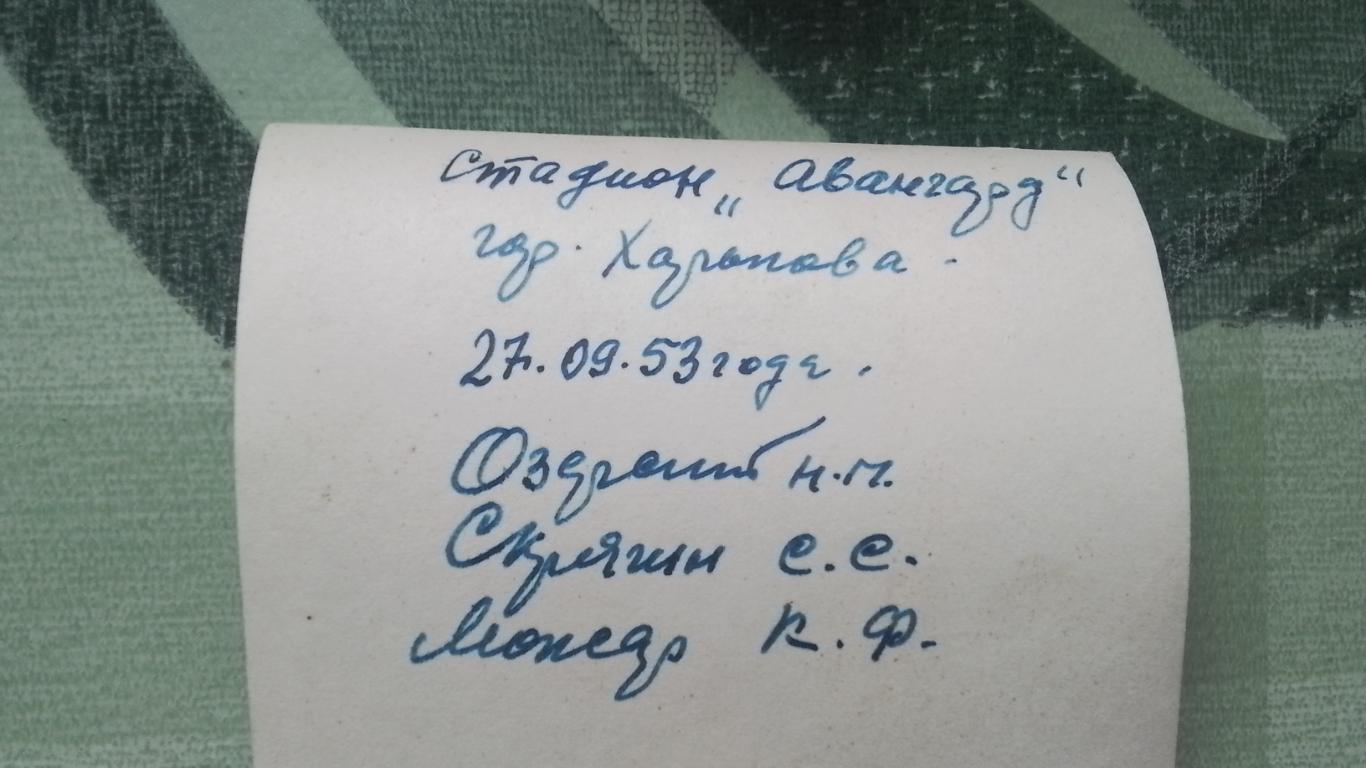 стадион „Авангард“
гор. Харькова.
27.09.53 года.
н.п.
Скрягин С.С.
Можар К.Ф.